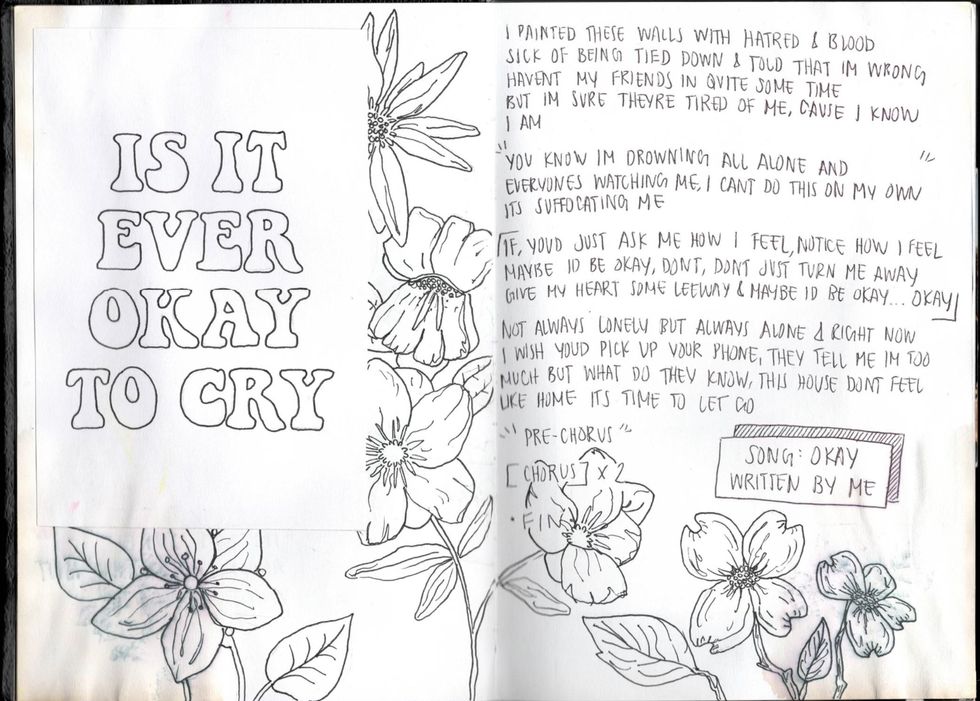 IS IT
EVER
OKAY
TO CRY
I PAINTED THESE WALLS WITH HATRED & BLOOD
SICK OF BEING TIED DOWN & TOLD THAT IM WRONG
HAVENT MY FRIENDS IN QUITE SOME TIME
BUT IM SURE THEYRE TIRED OF ME, CAUSE I KNOW
I AM
"YOU KNOW IM DROWNING ALL ALONE AND "
EVERYONES WATCHING ME, I CANT DO THIS ON MY OWN
ITS SUFFOCATING ME
[IF, YOUD JUST ASK ME HOW I FEEL, NOTICE HOW I FEEL
MAYBE ID BE OKAY, DONT, DONT JUST TURN ME AWAY
GIVE MY HEART SOME LEEWAY & MAYBE ID BE OKAY... OKAY]
NOT ALWAYS LONELY BUT ALWAYS ALONE & RIGHT NOW
I WISH YOUD PICK UP YOUR PHONE, THEY TELL ME IM TOO
MUCH BUT WHAT DO THEY KNOW, THIS HOUSE DONT FEEL
LIKE HOME ITS TIME TO LET GO
"PRE-CHORUS"
[CHORUS] X 2
• FIN
SONG: OKAY
WRITTEN BY ME